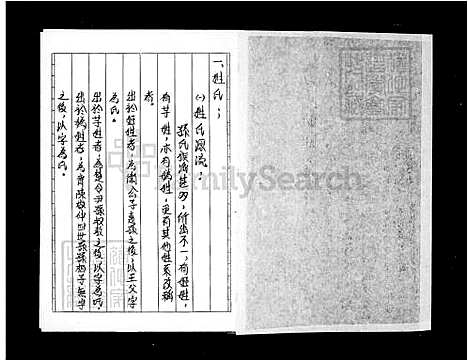 一、姓氏：
㈠姓氏源流：
孫氏族源甚多，所出不一，有姬姓，
有芈姓，亦有媯姓，更有其他姓氏改稱
者。
出於姬姓者，為衛公子惠孫之後，以王父字
為氏。
出於芈姓者，為楚令尹孫叔敖之後，以字為氏。
出於媯姓者，為齊陳敬仲四世孫桓子無宇
之後，以字為氏。
FamilySearch